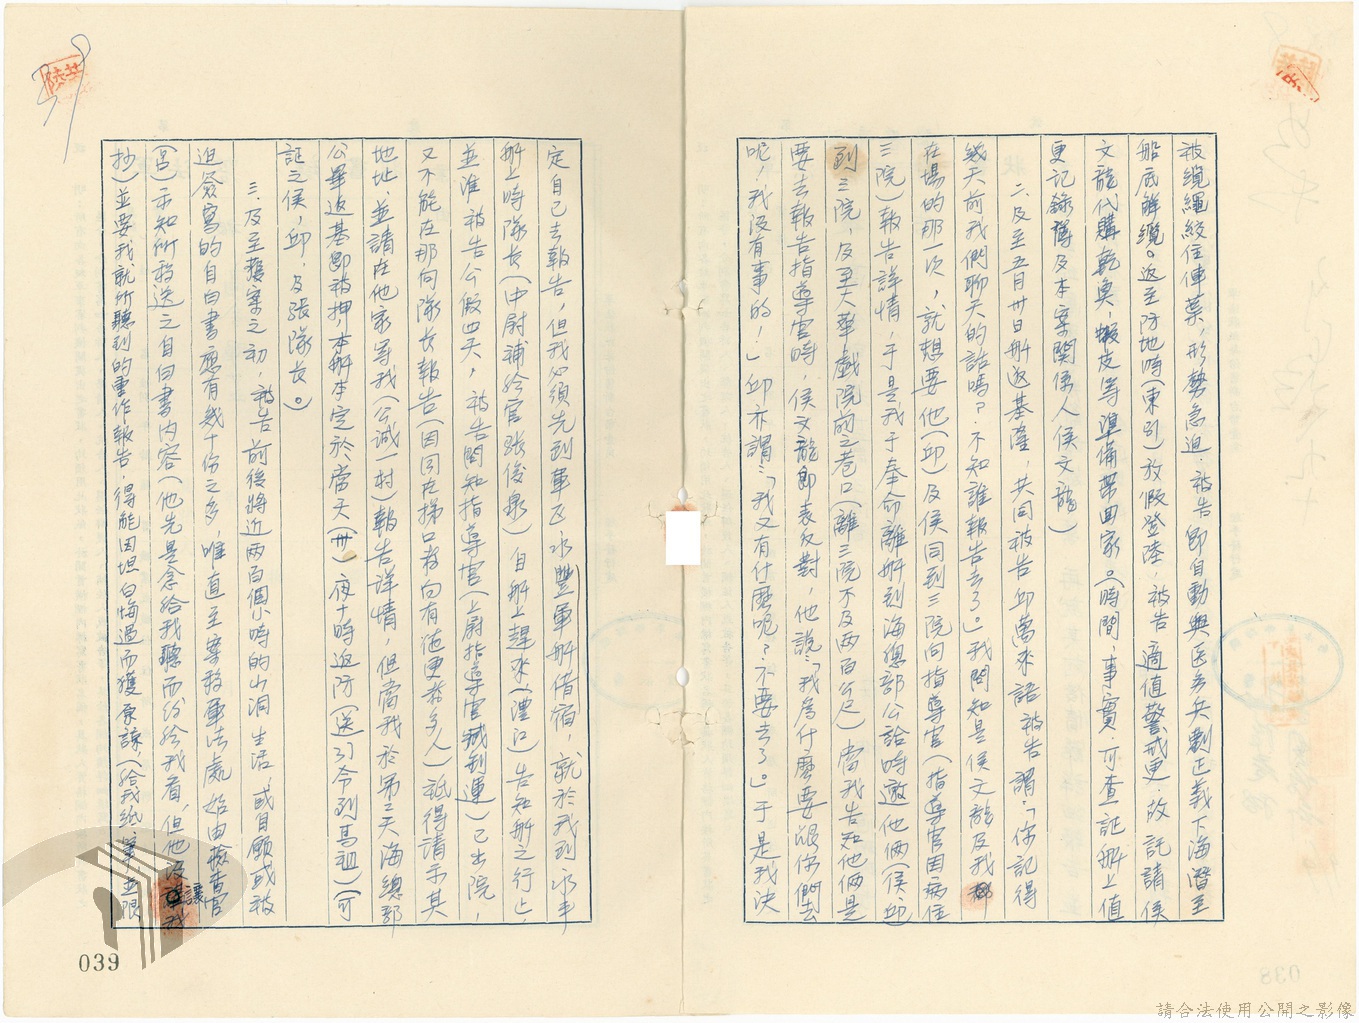 被纜繩絞住俥葉,形勢急迫,被告即自動與医务兵劉正義下海潛至
船底解纜。返至防地時(東引)放假登陸,被告適值警戒更,故託請侯
文龍代購乾奥,蝦皮等準備帶回家。(時間,事實,可查証艦上值
更記錄簿及本案関係人侯文龍)
二、及至五月卅日艦返基隆,共同被告邱萬來詔被告謂:「你記得
幾天前我們聊天的話嗎?不知誰報告去了。」我問知是侯文龍及我都
在場的那一次,就想要他(邱)及侯同到三院向指導官(指導官因病住
三院)報告詳情,于是我于奉命離艦到海總部公詒時邀他倆(侯、邱)
到三院,及至大華戲院前之巷口(離三院不及两百公尺)當我告知他倆是
要去報告指導官時,侯文龍即表反對,他說:「我為什麼要跟你們去
呢!我没有事的!」邱亦謂:「我又有什麼呢?不要去了。」于是我決
定自己去報告,但我必須先到軍区永豐軍艦借宿,就於我到永丰
艦上時隊長(中尉補給官張俊泉)自艦上趕來(澧江)告知艦之行止,
並准被告公假四天,被告問知指導官(上尉指導官臧剑運)已出院,
又不能在那向隊長報告(因同在梯口者尚有值更等多人)祇得請示其
地址,並請在他家等我(公誠一村)報告詳情,但當我於第三天海總部
公畢返基即被押,本艦本定於當天(卅)夜十時返防(送引令到馬祖)(可
証之侯,邱,及張隊長。
三、及至獲案之初,被告前後將近两百個小時的山洞生活,或自願或被
迫簽寫的自白書應有幾十份之多,唯直至案移軍法處始由檢查官
(呂)示知所移送之自白書内容(他先是念給我聽而後給我看,但他没讓我
抄)並要我就所聽到的重作報告,得能因坦白悔過而獲原諒,(給我紙,筆,並限
039
038
請合法使用公開之影像